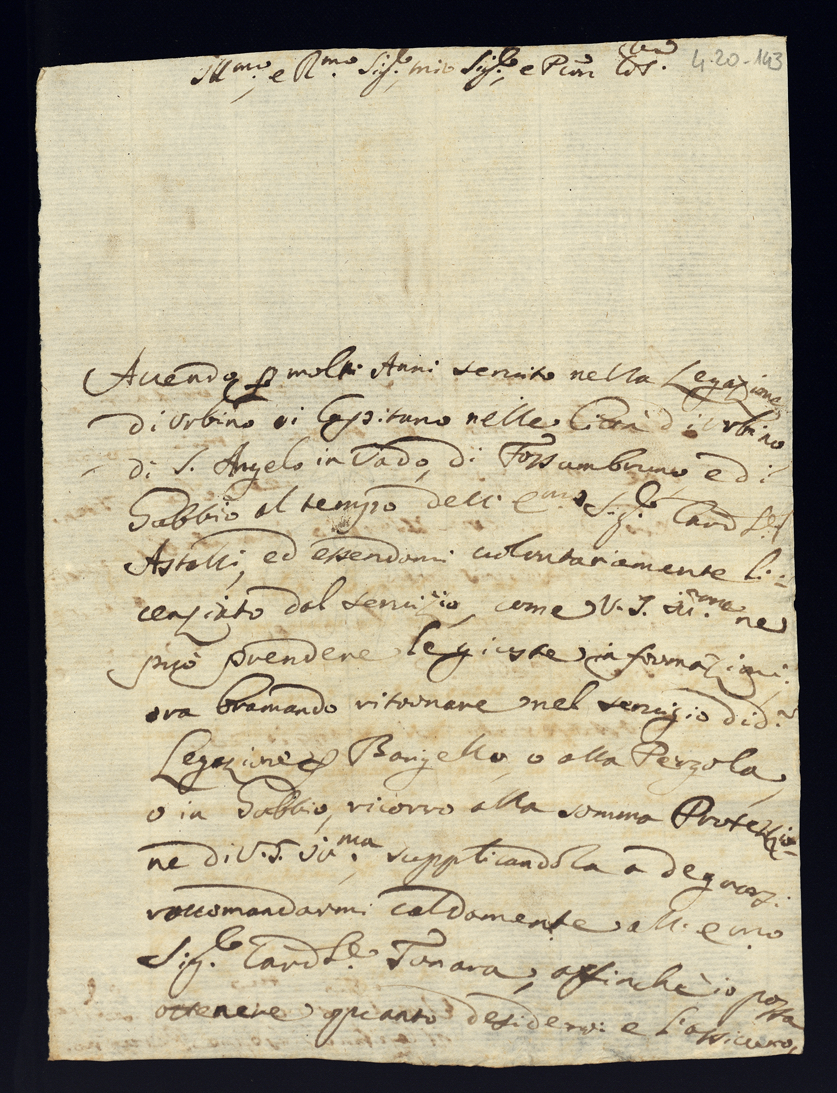 4-20-143
Ill.mo, e R.mo Sig.re, mio Sig.re, e P̃ron Col.mo
Auendo p molti Anni seruito nella Legazione
di Urbino di Capitano nelle Città di Urbino
di S. Angelo in Vado, di Fossombruno e di
Gubbio al tempo dell' E.mo Sig.re Card.le
Astalli, ed essendomi uolontariamente li=
cenziato dal seruizio, come V. S. Ill.ma ne
può prendere le giuste informazioni.
ora bramando ritornare nel seruizio di d.a
Legazione p Bargello, o alla Pergola,
o in Gubbio, ricorro alla somma Protezzio=
ne di V. S. Ill.ma, supplicandola a degnarsi
raccomandarmi caldamente all' E.mo
Sig.re Card.le Tanara, affinche io possa
ottenere quanto desidero: e l'assicuro,